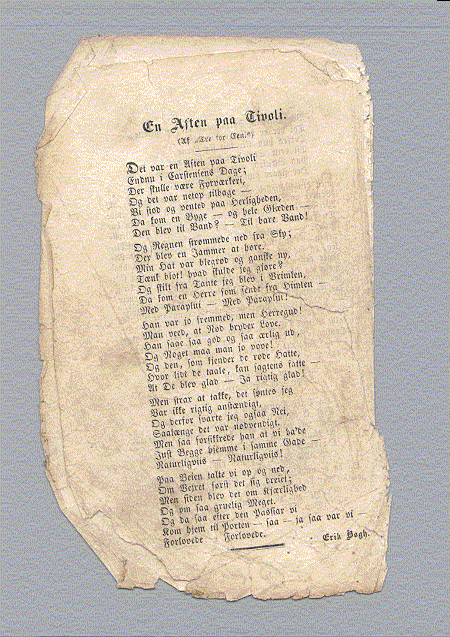 En Aften paa Tivoli.
(Af „Alle for Een.“)
Det var en Aften paa Tivoli
Endnu i Carstensens Dage;
Der skulle være Fyrværkeri,
Og det var netop tilbage —
Vi stod og vented paa Herligheden,
Da kom en Byge — og hele Glæden —
Den blev til Vand? — Til bare Vand!
Og Regnen strømmede ned fra Sky;
Der blev en Jammer at høre.
Min Hat var blegrød og ganske ny,
Tænk blot! hvad skulde jeg gjøre?
Og skilt fra Tante jeg blev i Vrimlen,
Da kom en Herre som sendt fra Himlen —
Med Paraplui — Med Paraplui!
Han var jo fremmed, men Herregud!
Man veed, at Nød bryder Love,
Han saae saa god og saa ærlig ud,
Og Noget maa man jo vove!
Og den, som kjender de røde Hatte,
Hvor lidt de taale, kan sagtens fatte —
At De blev glad — Ja rigtig glad!
Men strax at takke, det syntes jeg
Var ikke rigtig anstændigt,
Og derfor svarte jeg ogsaa Nei,
Saalænge det var nødvendigt.
Men saa forsikkrede han at vi ba'de
Just Begge hjemme i samme Gade —
Naturligviis — Naturligviis!
Paa Veien talte vi op og ned,
Om Veiret først det sig dreiet;
Men siden blev det om Kjærlighed
Og om saa gruelig Meget.
Og da saa efter den Passiar vi
Kom hjem til Porten — saa — ja saa var vi —
Forlovede Forlovede.
Erik Bøgh.